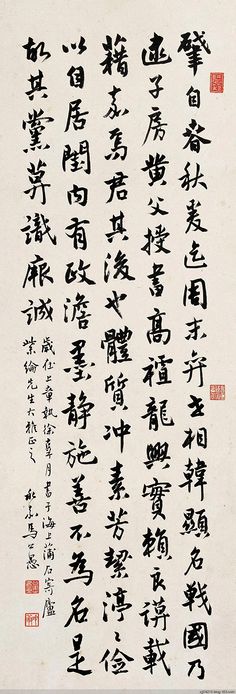 肇自春秋爰迄周末弈世相韓顯名戰國乃
逮子房黄父授書高龍興實賴良謨載
藉嘉焉君其後也體質冲素芳潔渟〻儉
以自居閨内有政澹墨静施善不為名是
故其黨莫識厥誠
歲在上章執徐辜月書于海上蒲石寄廬
紫綸先生大雅正之
永嘉馬公愚